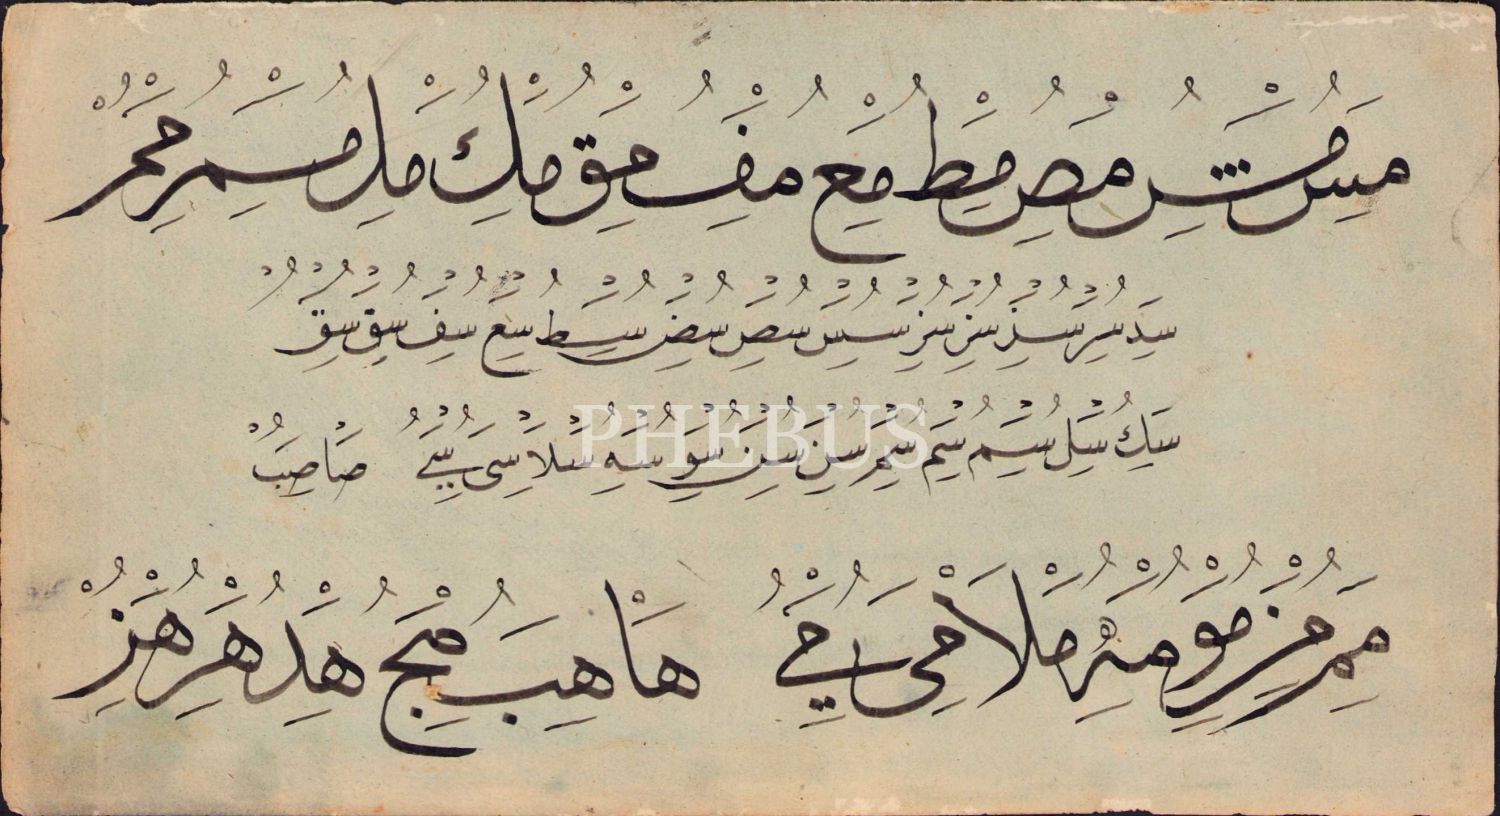 مس مش مص مط مع مف مق مك مل مم مم
سد سر سز سز سس سص سض سط سع سف سق سق
سك سل سم سم سم سن سن سو سه سلا سى سي صا صب
PHEBUS
من مو مه ملا مى مي ها هب هج هد هر هز